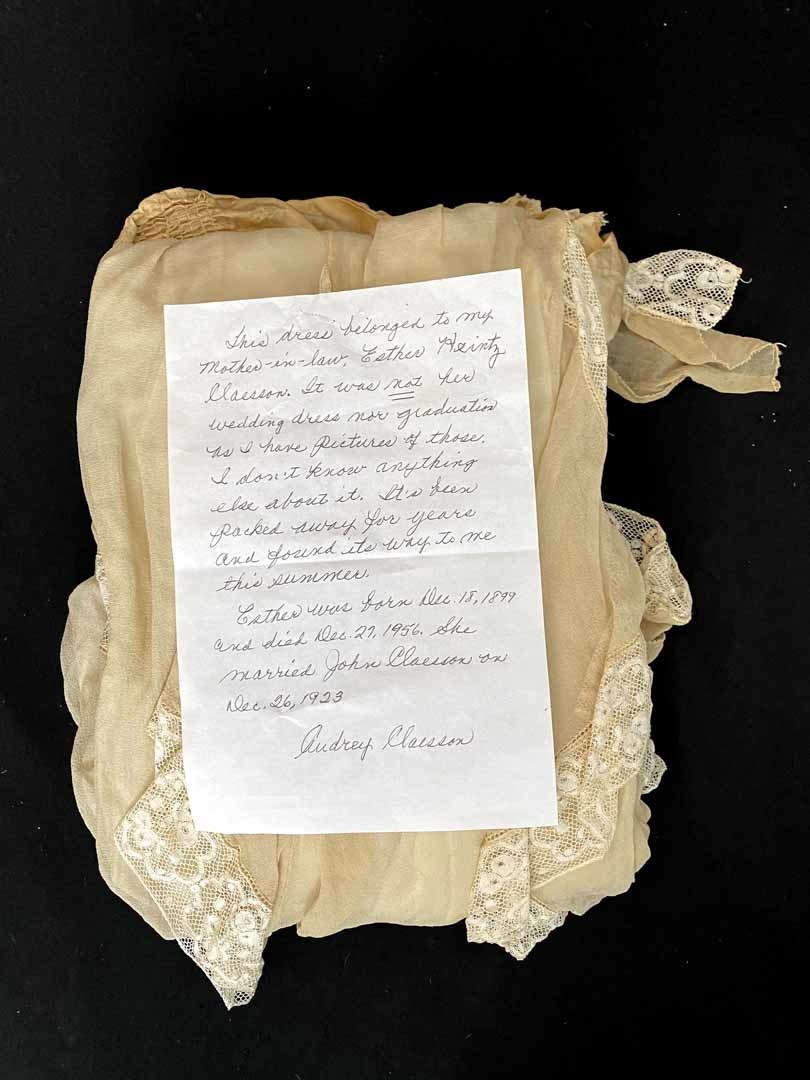 This dress belonged to my
Mother-in-law, Esther Heintz
Claesson. It was not her
wedding dress nor graduation
as I have pictures of those.
I don't know anything
else about it. It's been
packed away for years
and found its way to me
this summer.
Esther was born Dec. 18, 1899
and died Dec. 27, 1956. She
married John Claesson on
Dec. 26, 1923
Audrey Claesson